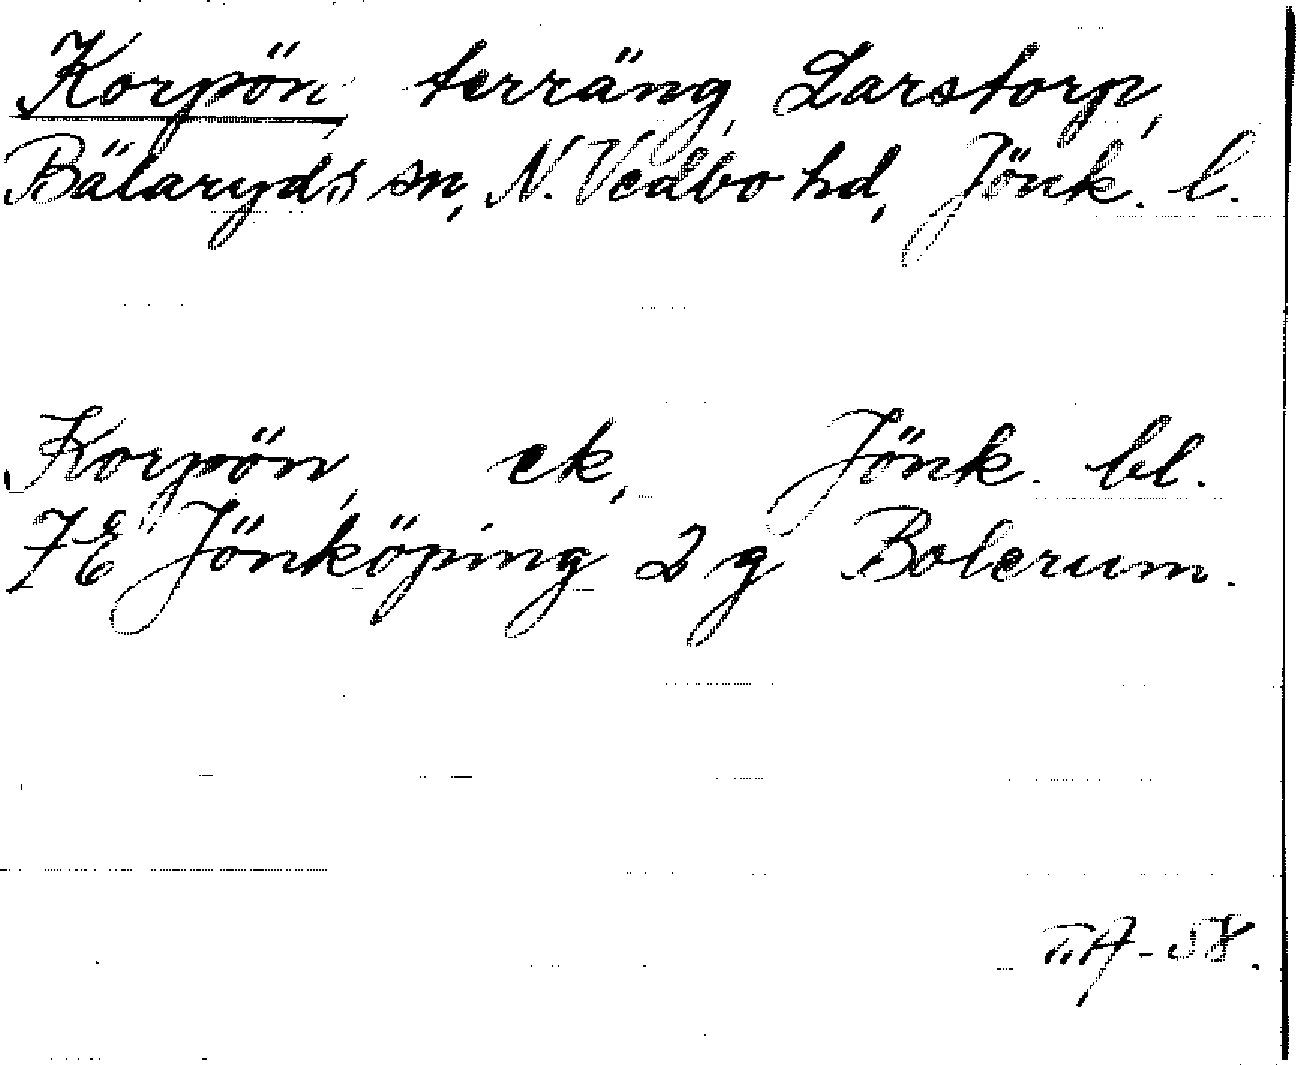 Korpön terräng, Larstorp,
Bälaryds sn, N. Vedbo hd, Jönk. l.
Korpön, ek, Jönk. bl.
7E Jönköping 2 g Bolerum.
TA - 58.